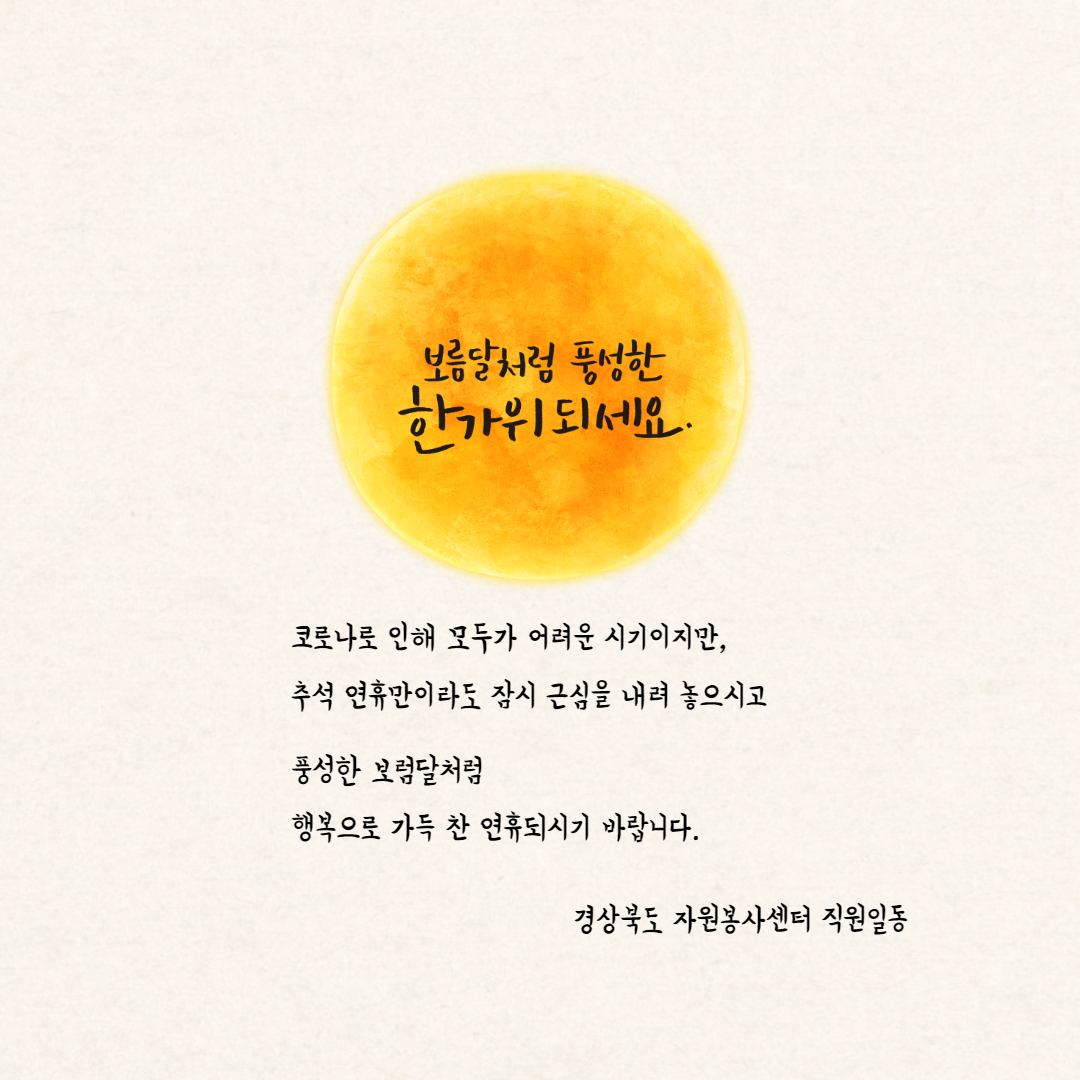 보름달처럼 풍성한
한가위 되세요.
코로나로 인해 모두가 어려운 시기이지만,
추석 연휴만이라도 잠시 근심을 내려 놓으시고
풍성한 보럼달처럼
행복으로 가득 찬 연휴되시기 바랍니다.
경상북도 자원봉사센터 직원일동